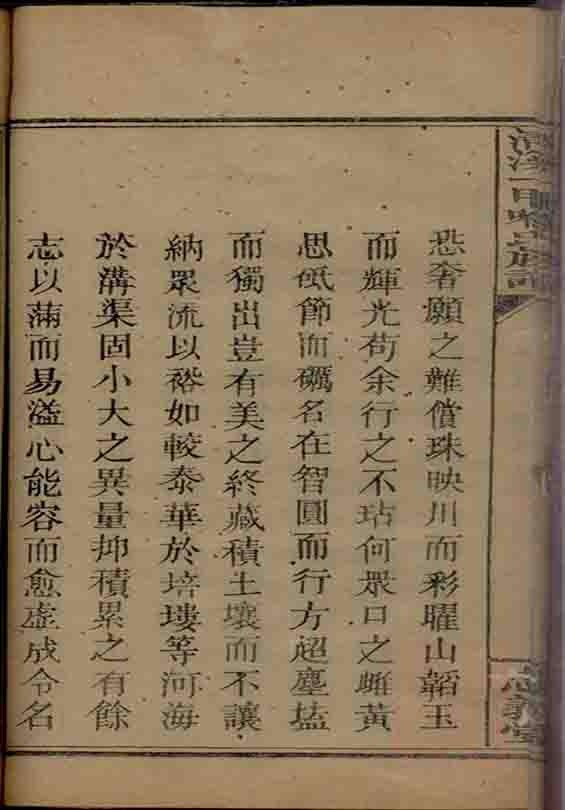 恐奢願之難償珠映川而彩曜山韜玉
而輝光苟余行之不玷何眾口之雌黃
思砥節而礪名在智圓而行方超塵壒
而獨出豈有美之終藏積土壤而不讓
納眾流以裕如較泰華於培塿等河海
於溝渠固小大之異量抑積累之有餘
志以滿而易溢心能容而愈虛成令名
族譜
忠義堂